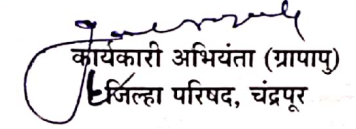 कार्यकारी अभियंता (ग्रापापु)
जिल्हा परिषद, चंद्रपूर